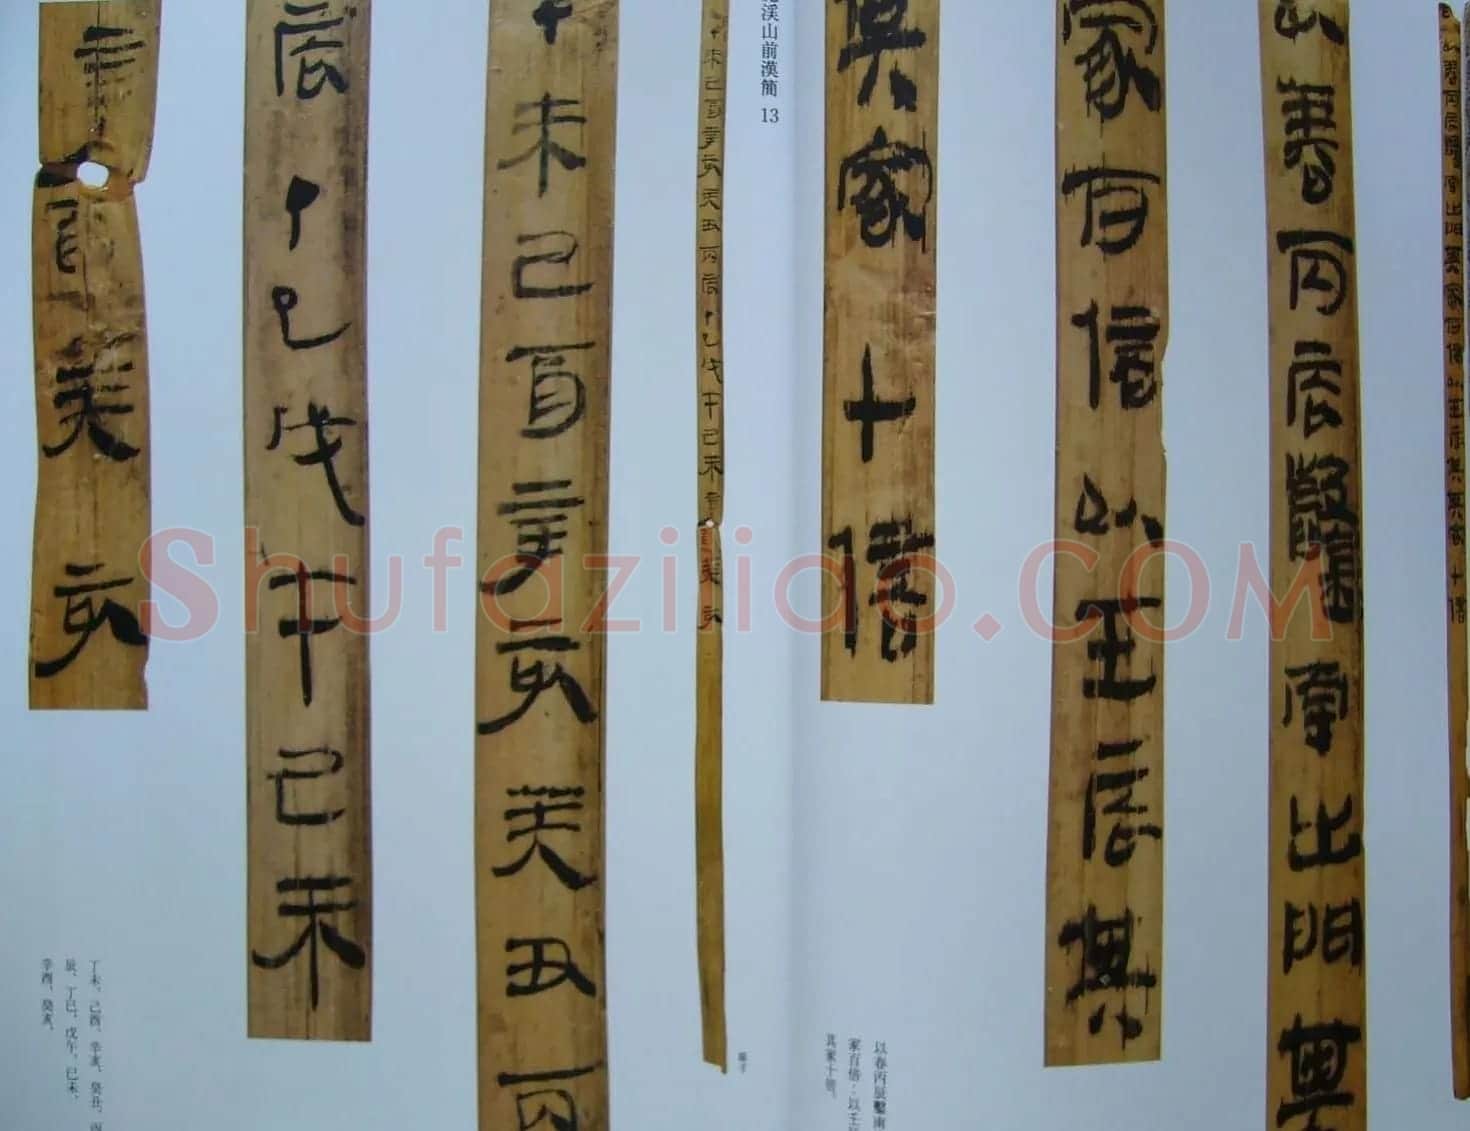 以春丙辰鑿南出門其家百倍以壬辰其其家十倍
以春丙辰鑿南出門其
家百倍以壬辰其
其家十倍
以春丙辰鑿南
家百倍：以壬
其家十倍。
溪山前漢簡 13
丁未己酉辛亥癸丑丙辰丁巳戊午己未辛酉癸亥
丁未己酉辛亥癸丑丙
辰丁巳戊午己未
辛酉癸亥
丁未、己酉、辛亥、癸丑、丙
辰、丁巳、戊午、己未、
辛酉、癸亥。
Shufaziliao.COM